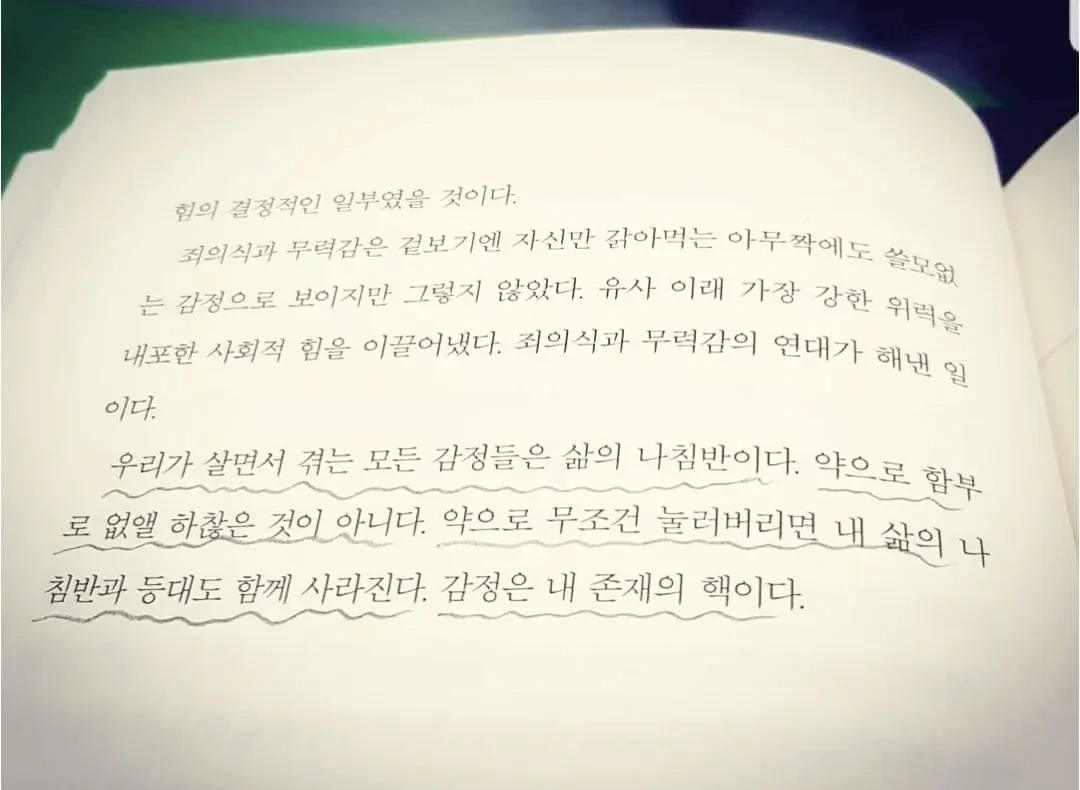 힘의 결정적인 일부였을 것이다.
죄의식과 무력감은 겉보기엔 자신만 갉아먹는 아무짝에도 쓸모없
는 감정으로 보이지만 그렇지 않았다. 유사 이래 가장 강한 위력을
내포한 사회적 힘을 이끌어냈다. 죄의식과 무력감의 연대가 해낸 일
이다.
우리가 살면서 겪는 모든 감정들은 삶의 나침반이다. 약으로 함부
로 없앨 하찮은 것이 아니다. 약으로 무조건 눌러버리면 내 삶의 나
침반과 등대도 함께 사라진다. 감정은 내 존재의 핵이다.